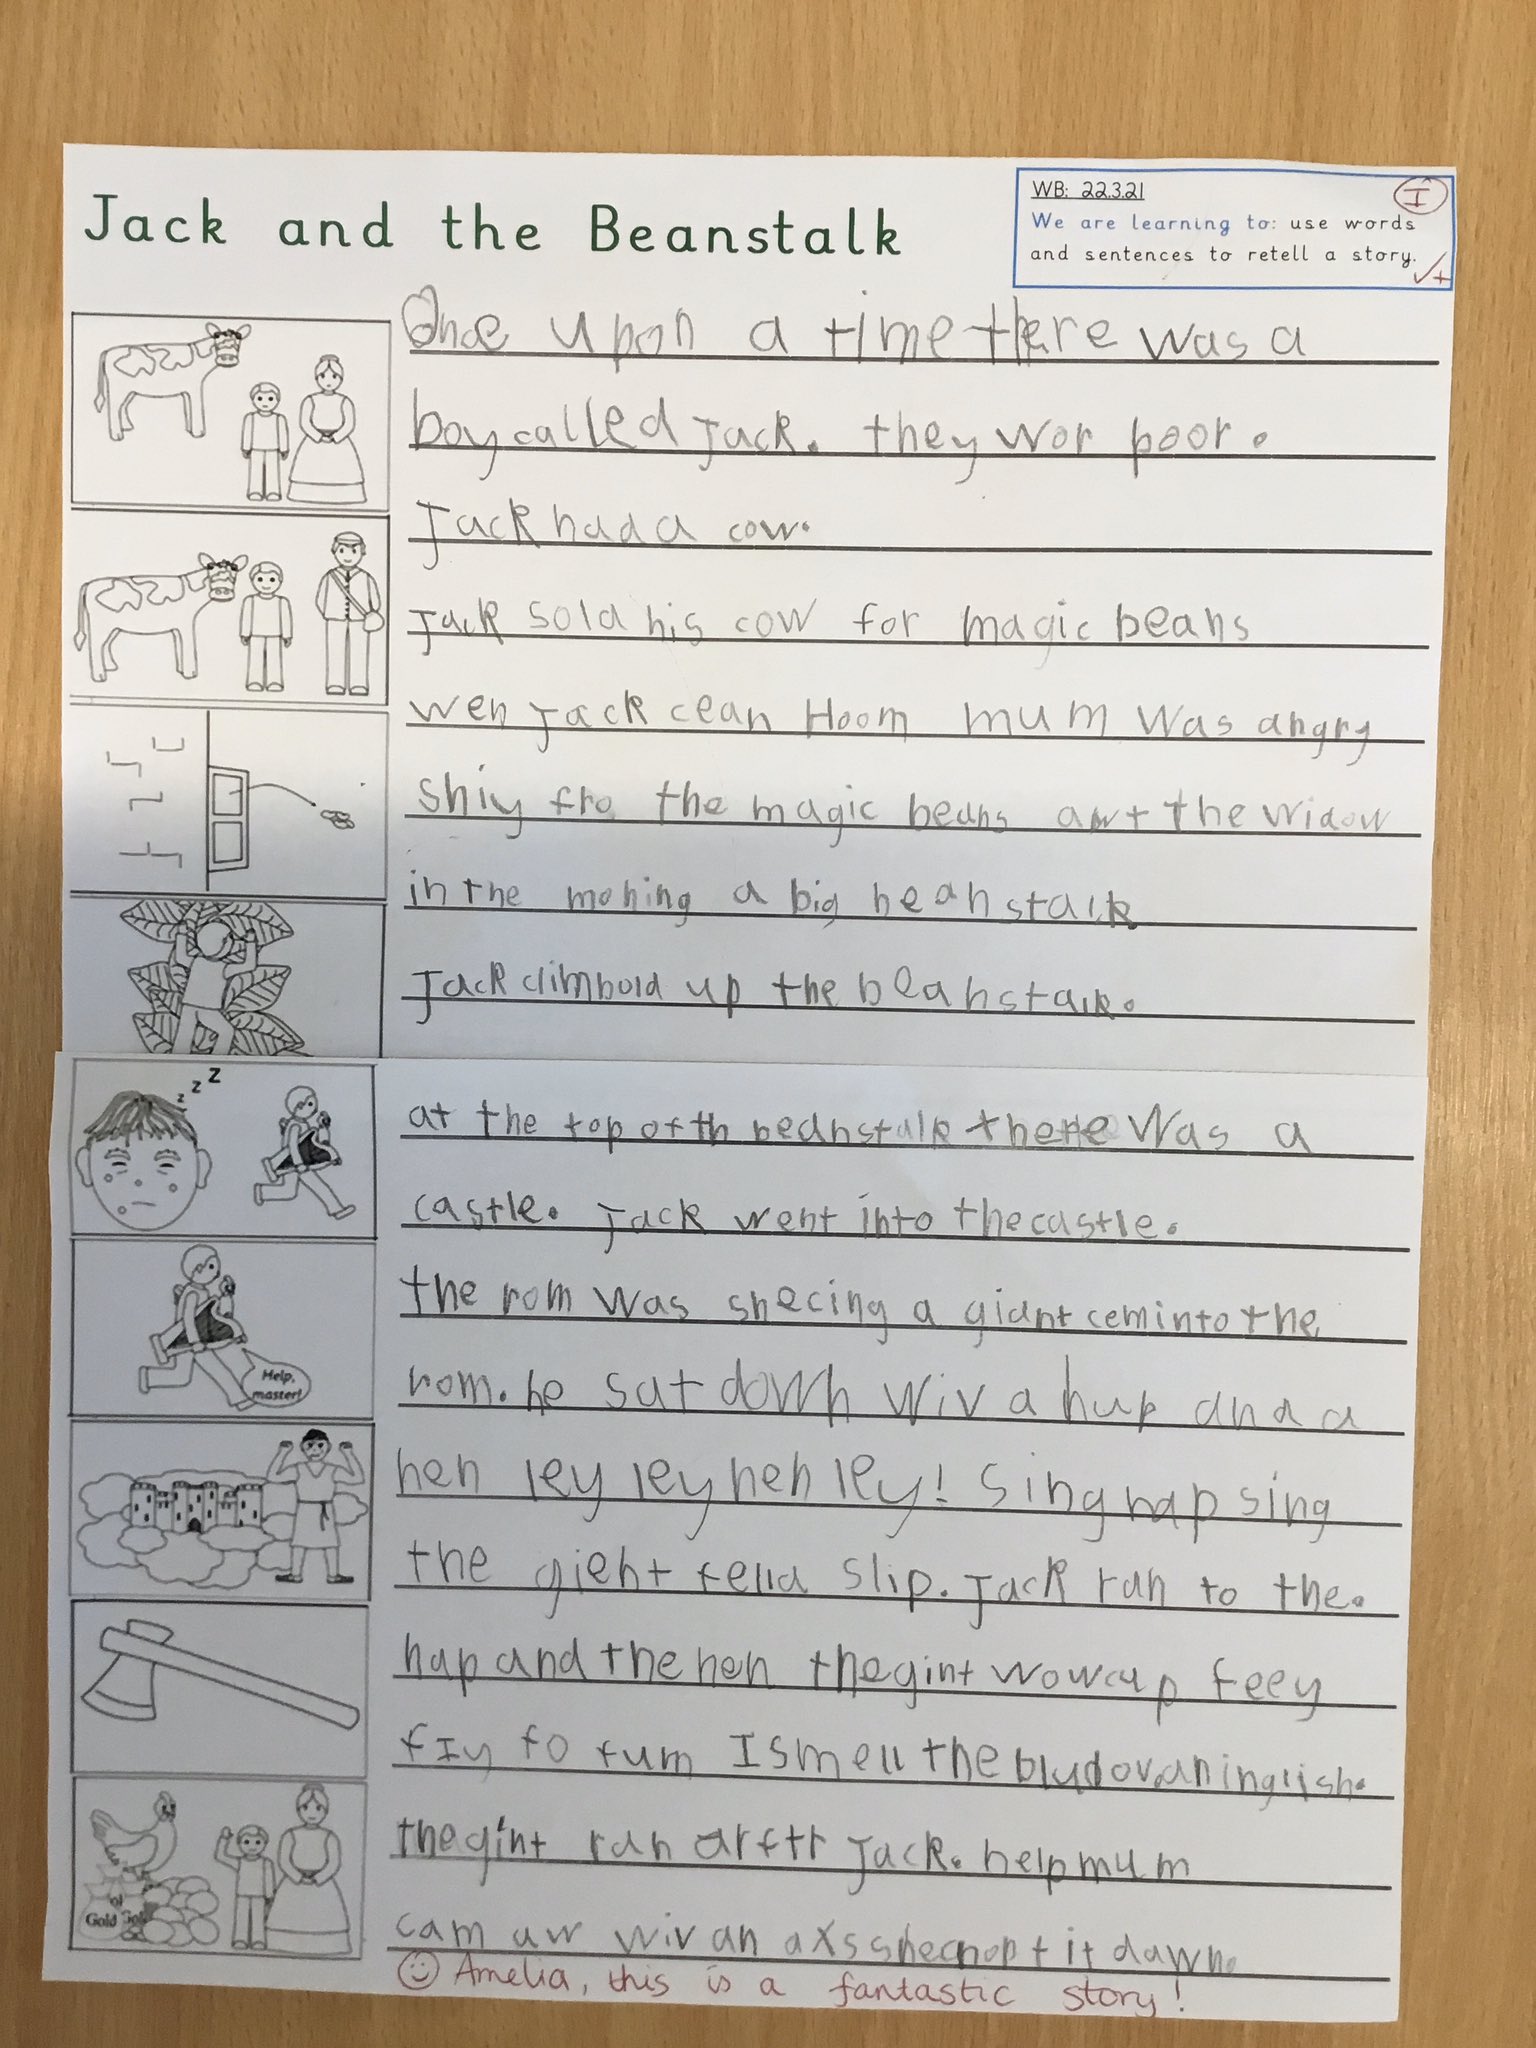 Jack and the Beanstalk
WB: 22.3.21
I
We are learning to: use words
and sentences to retell a story.
Once upon a time there was a
boy called Jack. they wor poor.
Jack had a cow.
Jack sold his cow for magic beans
wen Jack cean Hoom mum was angry
shiy fro the magic beans awt the widow
in the moning a big beanstalk
Jack climbold up the beanstalk.
z z Z
at the top of th beanstalk there was a
castle. Jack went into the castle.
the rom was shecing a giant cem into the
Help, master!
rom. he sat down wiv a hup and a
hen ley ley hen ley! sing hap sing
the gieht felld slip. Jack ran to the.
hap and the hen the gint wow cup feey
fIy fo fum I smell the blud ov an inglish.
the gint ran arftr Jack. help mum
of Gold
cam uw wiv an axs shecnopt it dawn.
Amelia, this is a fantastic story!